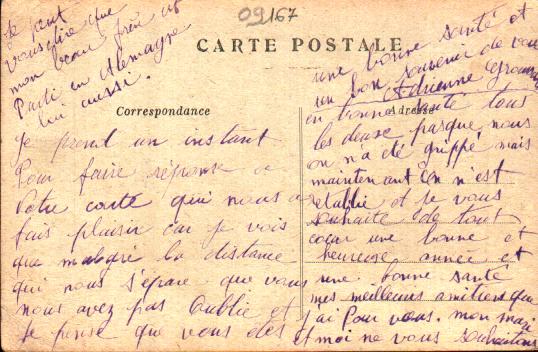 09167
CARTE POSTALE
Correspondance
Adresse
Je prend un instant
Pour faire réponse a
Votre carte qui nous a
fais plaisir car je vois
que malgré la distance
qui nous s'épare que vous
nous avez pas Oublié et
Je pense que vous êtes
en bonne santé tous
les deuse pasque nous
on n a été grippé mais
maintenant on n'est
rétablie et je vous
souhaite de tout
cœur une bonne et
heureuse année et
une bonne santé
mes meilleurs amitiers que
j'ai Pour vous. mon mari
et moi ne vous souhaitons
une bonne santé et
un bon souvenir de vous
Adrienne
Je
vous dire que
mon beau frère est
Parti en Alemagne
lui aussi.